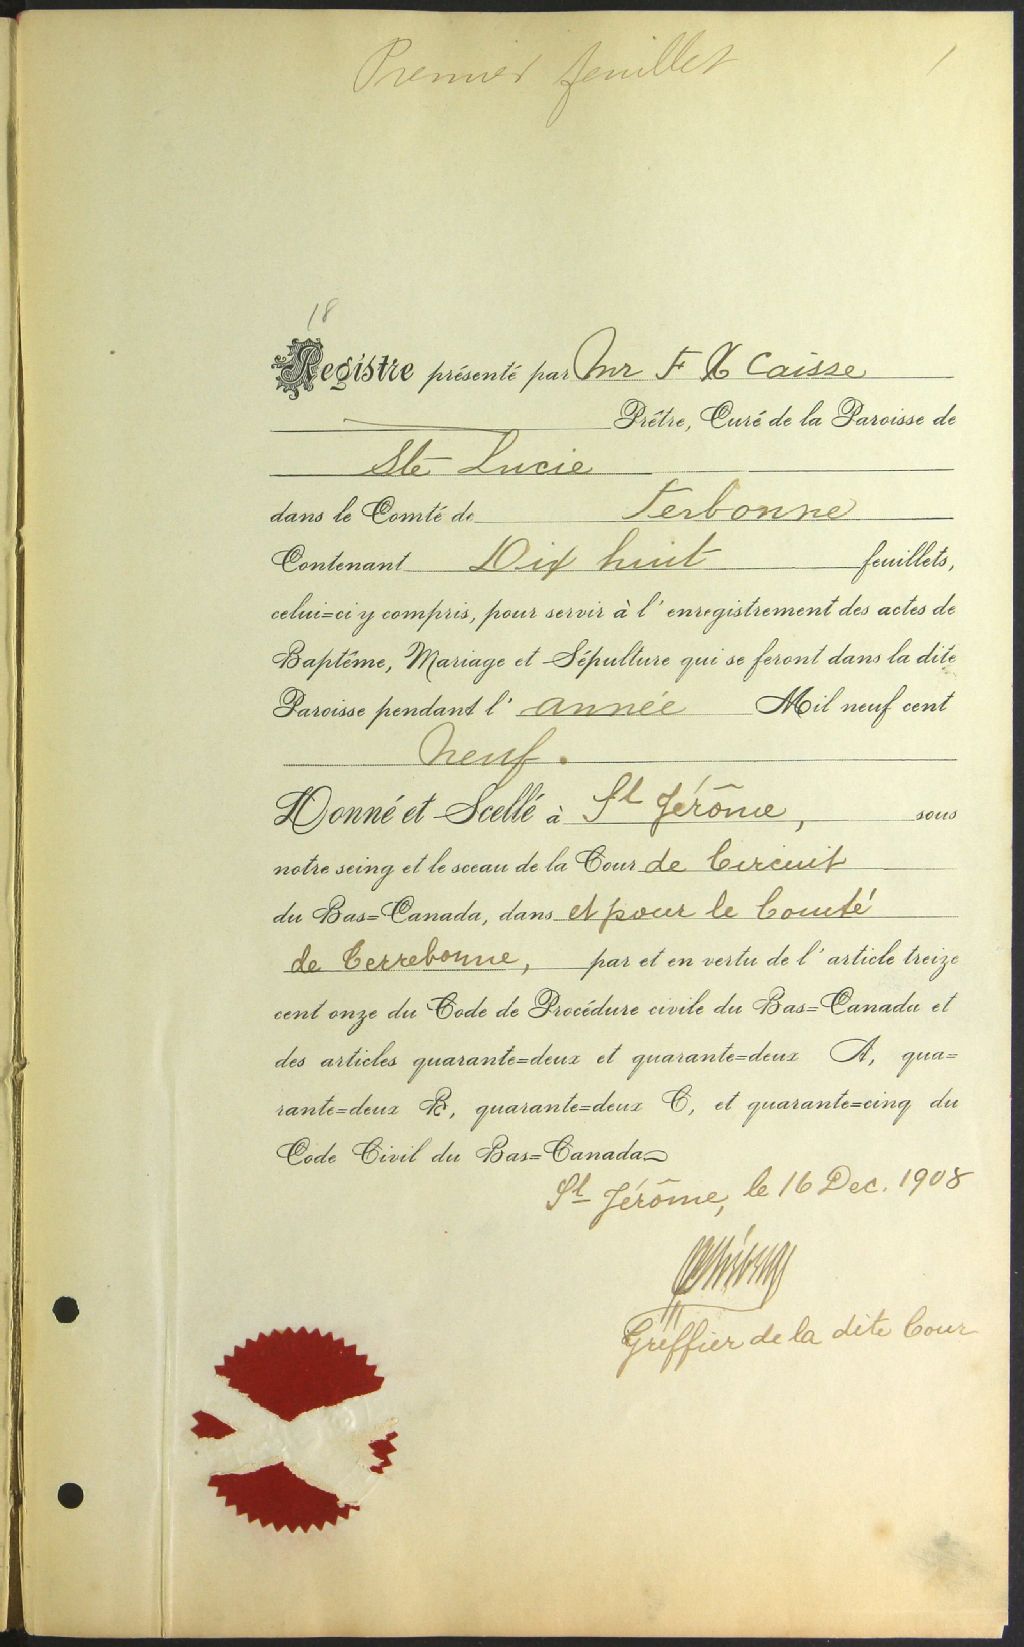 Premier feuillet 1
18
Registre présenté par Mr F X Caisse
Prêtre, Curé de la Paroisse de
Ste Lucie
dans le Comté de Terbonne
Contenant Dix huit feuillets,
celui=ci y compris, pour servir à l'enregistrement des actes de
Baptême, Mariage et Sépulture qui se feront dans la dite
Paroisse pendant l'année Mil neuf cent
neuf.
Donné et Scellé à St Jérôme, sous
notre seing et le sceau de la Cour de Circuit
du Bas=Canada, dans et pour le Comté
de Terrebonne, par et en vertu de l'article treize
cent onze du Code de Procédure civile du Bas=Canada et
des articles quarante=deux et quarante=deux A, qua=
rante=deux B, quarante=deux C, et quarante=cinq du
Code Civil du Bas=Canada
St Jérôme, le 16 Dec. 1908
Greffier de la dite Cour